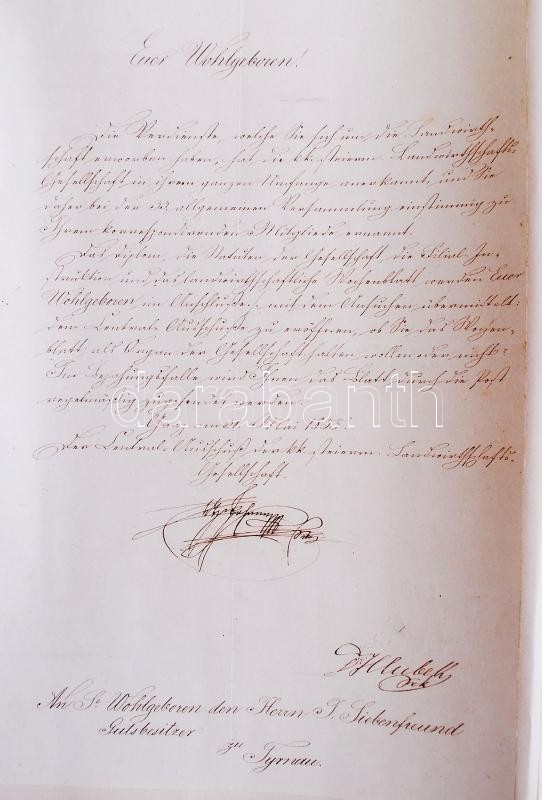 Euer Wohlgeboren!
Die Verdienste, welche Sie sich um die Landwirth-
schaft erworben haben, hat die kk. steierm. Landwirthschafts-
Gesellschaft in ihrem ganzen Umfange anerkannt, und Sie
daher bei der allgemeinen Versammlung einstimmig zu
Ihrem korrespondirenden Mitgliede ernannt.
Das Diplom, die Statuten der Gesellschaft, die Filial-In-
struktion und das landwirthschaftliche Wochenblatt werden Euer
Wohlgeboren im Anschluße mit dem Ansuchen übermittelt:
dem Centrale Ausschuße zu eröffnen, ob Sie das Wochen-
blatt als Organ der Gesellschaft halten wollen oder nicht.
Im Bejahungsfalle wird Ihnen das Blatt durch die Post
regelmäßig zugesendet werden.
darabanth
Graz am Mai 1858.
Der Centrale Ausschuß der kk. steierm. Landwirthschafts-
Gesellschaft.
Johann
Hlubek
An Sr Wohlgeboren den Herrn J. Siebenfreund
Gutsbesitzer
zu Tyrnau.